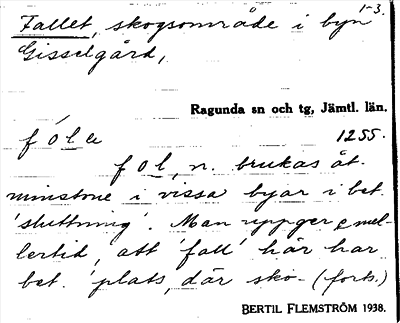 1-3.
Fallet, skogsområde i byn
Gisselgård,
Ragunda sn och tg, Jämtl. län.
fóle 1255.
fol, n. brukas åt-
minstone i vissa byar i bet.
'sluttning'. Man uppger emel-
lertid, att 'fall' här har
bet. 'plats, där sko- (forts.)
BERTIL FLEMSTRÖM 1938.